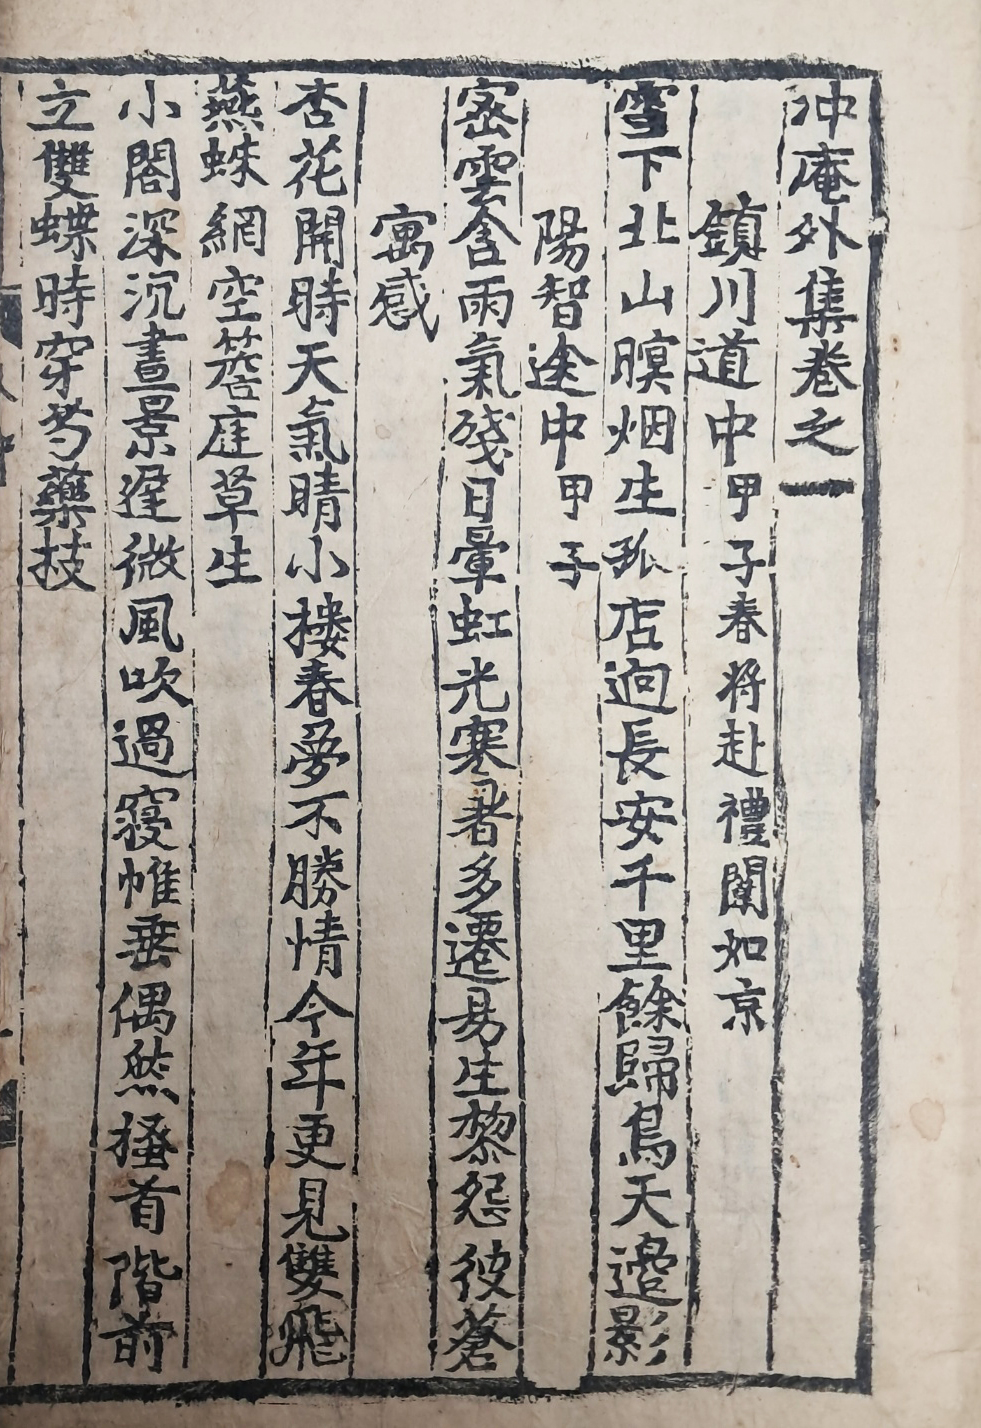 冲庵外集卷之一
鎮川道中甲子春将赴禮闈如京
雪下北山暝烟生孤店逈長安千里餘歸鳥天邊影
陽智途中甲子
密雲含雨氣殘日暈虹光寒暑多遷易生黎怨彼蒼
寓感
杏花開時天氣晴小樓春夢不勝情今年更見雙飛
燕蛛網空簷庭草生
小閤深沉晝景遅微風吹過寢帷垂偶然搔首階前
立雙蝶時穿芍藥枝